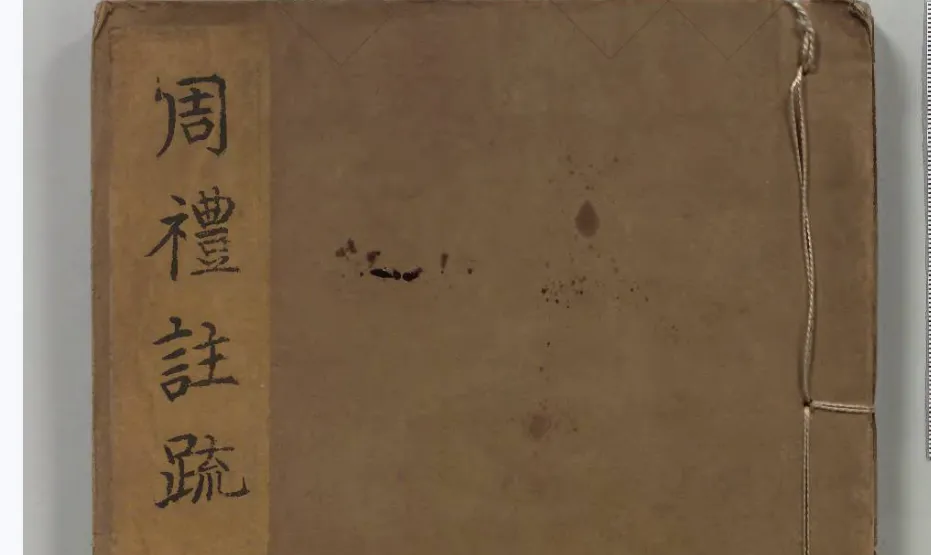 周禮註疏